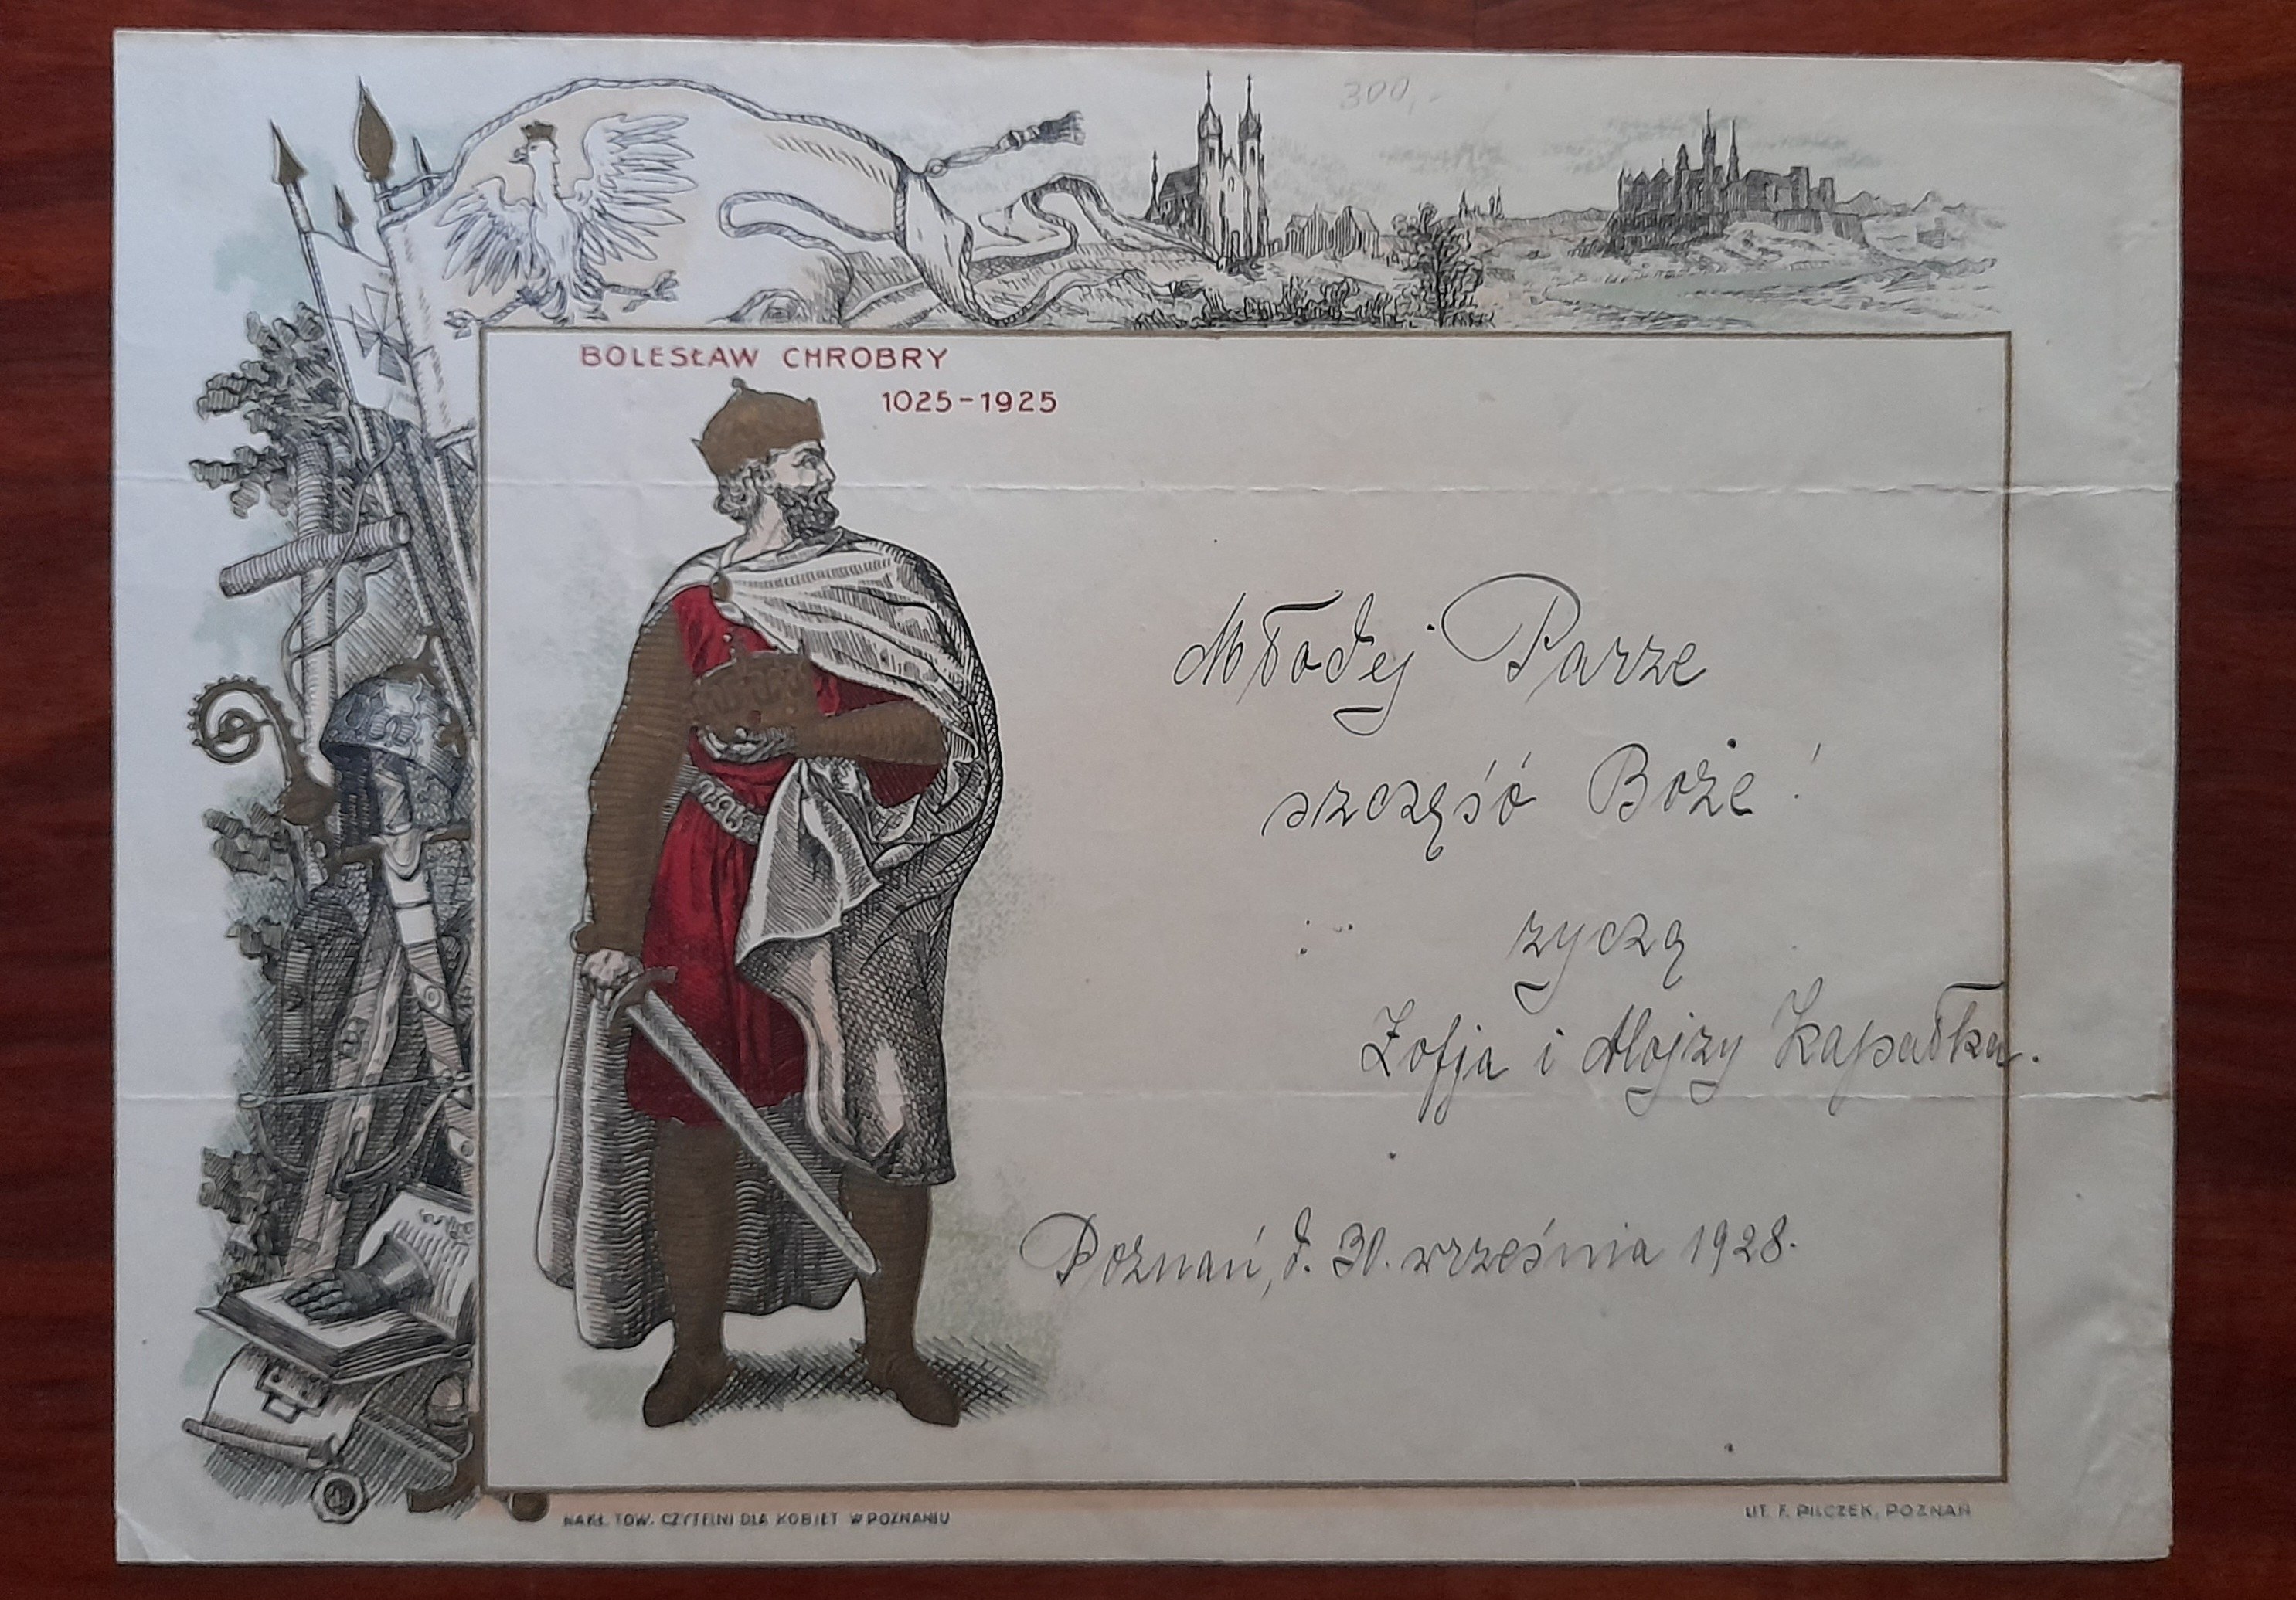 300,-
BOLESŁAW CHROBRY
1025-1925
Młodej Parze
szczęść Boże!
życzą
Zofja i Alojzy Kapałka.
Poznań, d. 30. września 1928.
NAKŁ. TOW. CZYTELNI DLA KOBIET W POZNANIU
LIT. F. PILCZEK, POZNAŃ